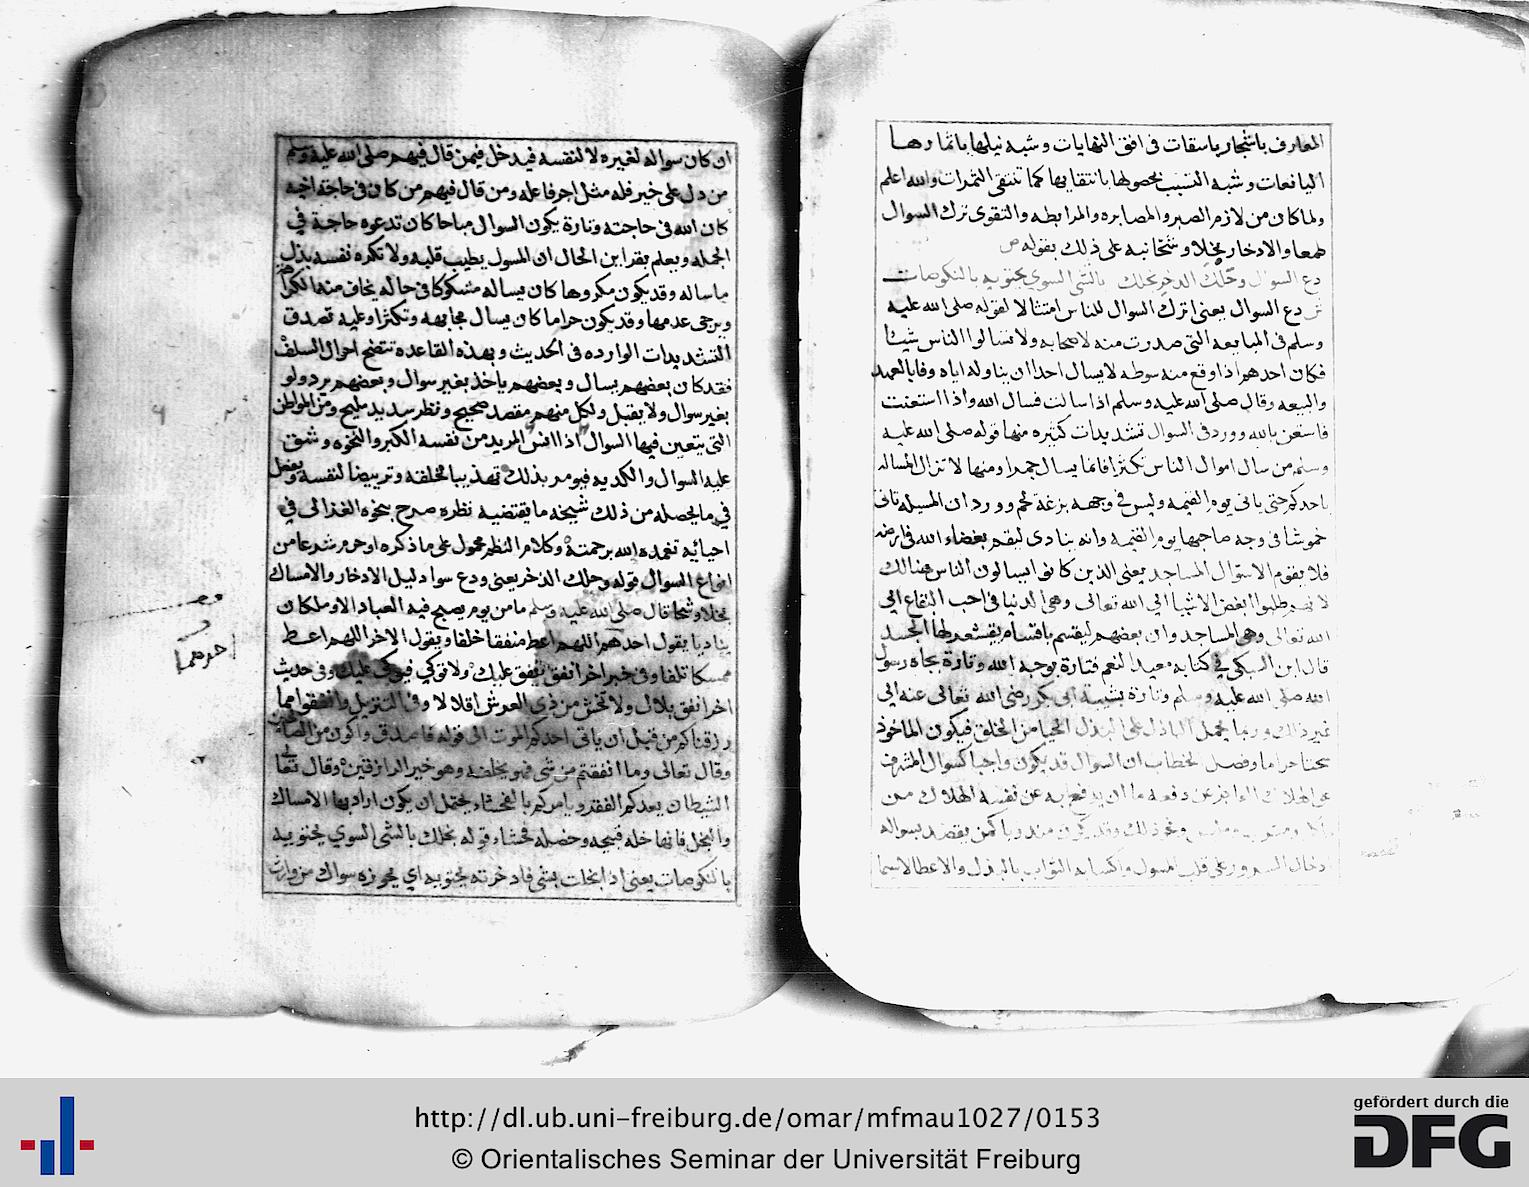 المعارف باشجار باسقات فى افق النهايات وشبه نيلها باثمارها
اليانعات وشبه التسبب بحصولها بانتقايها كما تنتقى الثمرات والله اعلم
ولما كان من لازم الصبر والمصابره والمرابطه والتقوى ترك السوال
طمعا والادخار بخلا وشحا نبه على ذلك بقوله ص
دع السوال وخلك الدخر بخلك بالشى السوي يحتويه بالنكوصات
ش دع السوال يعنى اترك السوال للناس امتثالا لقوله صلى الله عليه
وسلم فى المبايعه التى صدرت منه لاصحابه ولا تسالوا الناس شيئا
فكان احدهم اذا وقع منه سوطه لا يسال احدا ان يناوله اياه وفا بالعهد
والبيعه وقال صلى الله عليه وسلم اذا سالت فسال الله واذا استعنت
فاستعن بالله وورد فى السوال تشديدات كثيره منها قوله صلى الله عليه
وسلم من سال اموال الناس تكثرا فانما يسال جمرا ومنها لا تزال المساله
باحدكم حتى ياتى يوم القيمه وليس فى وجهه مزعة لحم وورد ان المسيله تاتى
خموشا فى وجه صاحبها يوم القيمه وانه ينادى ليقم بغضاء الله فى ارضه
فلا يقوم الا سوال المساجد يعنى الذين كانوا يسالون الناس هنالك
لانهم طلبوا ابغض الاشيا الي الله تعالى وهى الدنيا فى احب البقاع الي
الله تعالى وهى المساجد وان بعضهم ليقسم باقسام يقشعر لها الجسد
قال ابن السبكى في كتابه معيد النعم فتارة بوجه الله وتارة بجاه رسول
الله صلى الله عليه وسلم وتارة بشيبة ابى بكر رضى الله تعالى عنه الي
غير ذلك وربما يحمل الباذل على البذل الحيا من الخلق فيكون الماخوذ
سحتا حراما وفصل الخطاب ان السوال قد يكون واجبا كسوال المشرف
على الهلاك العاجز عن دفعه ما ان يدفع به عن نفسه الهلاك من
وغير ذلك وقد يكون مندوبا كمن يقصد بسواله
ادخال السرور على قلب المسول واكتسابه الثواب بالبذل والاعطا لاسيما
ان كان سواله لغيره لا لنفسه فيدخل فيمن قال فيهم صلى الله عليه وسلم
من دل على خير فله مثل اجر فاعله ومن قال فيهم من كان فى حاجة اخيه
كان الله فى حاجته وتارة يكون السوال مباحا كان تدعوه حاجة في
الجمله ويعلم بقراين الحال ان المسول يطيب قلبه ولا تكره نفسه بذل
ما ساله وقد يكون مكروها كان يساله متشكوكا فى حاله يخاف منه الكراهة
ويرجى عدمها وقد يكون حراما كان يسال مجابهه وتكثرا وعليه تصدق
التشديدات الوارده فى الحديث وبهذه القاعده تتضح احوال السلف
فقد كان بعضهم يسال وبعضهم ياخذ بغير سوال وبعضهم يرد ولو
بغير سوال ولا يقبل ولكل منهم مقصد صحيح ونظر سديد مليح ومن المواطن
التى يتعين فيها السوال اذا انس المريد من نفسه الكبر والنخوه وشق
عليه السوال والكديه فيومر بذلك تهذيبا لخلقه وترييضا لنفسه ويعمل
في ما يحصله من ذلك شيخه ما يقتضيه نظره صرح بنحوه الغزالى في
احيائه تغمده الله برحمته وكلام النظم محمول على ما ذكره او حرم شرعا من
انواع السوال قوله وخلك الذخر يعنى ودع سوا دليل الادخار والامساك
بخلا وشحا قال صلى الله عليه وسلم ما من يوم يصبح فيه العباد الا وملكان
يناديا يقول احدهم اللهم اعط منفقا خلفا ويقول الاخر اللهم اعط
ممسكا تلفا وفى خبر اخر انفق ننفق عليك ولا توكي فيوكى عليك وفى حديث
اخر انفق بلال ولا تخش من ذى العرش اقلالا وفى التنزيل وانفقوا مما
رزقناكم من قبل ان ياتى احدكم الموت الى قوله فاصدق واكون من الصالحين
وقال تعالى وما انفقتم من شى فهو يخلفه وهو خير الرازقين وقال تعا
الشيطان يعدكم الفقر ويامركم بالفحشاء يحتمل ان يكون اراد بها الامساك
والبخل فانها خله قبيحه وخصله فحشاء وقوله بخلك بالشى السوي يحتويه
بالنكوصات يعنى اذا بخلت بشى فادخرته يحتويه اي يحوزه سواك من وارث
احدهما
http://dl.ub.uni-freiburg.de/omar/mfmau1027/0153
© Orientalisches Seminar der Universität Freiburg
gefördert durch die
DFG